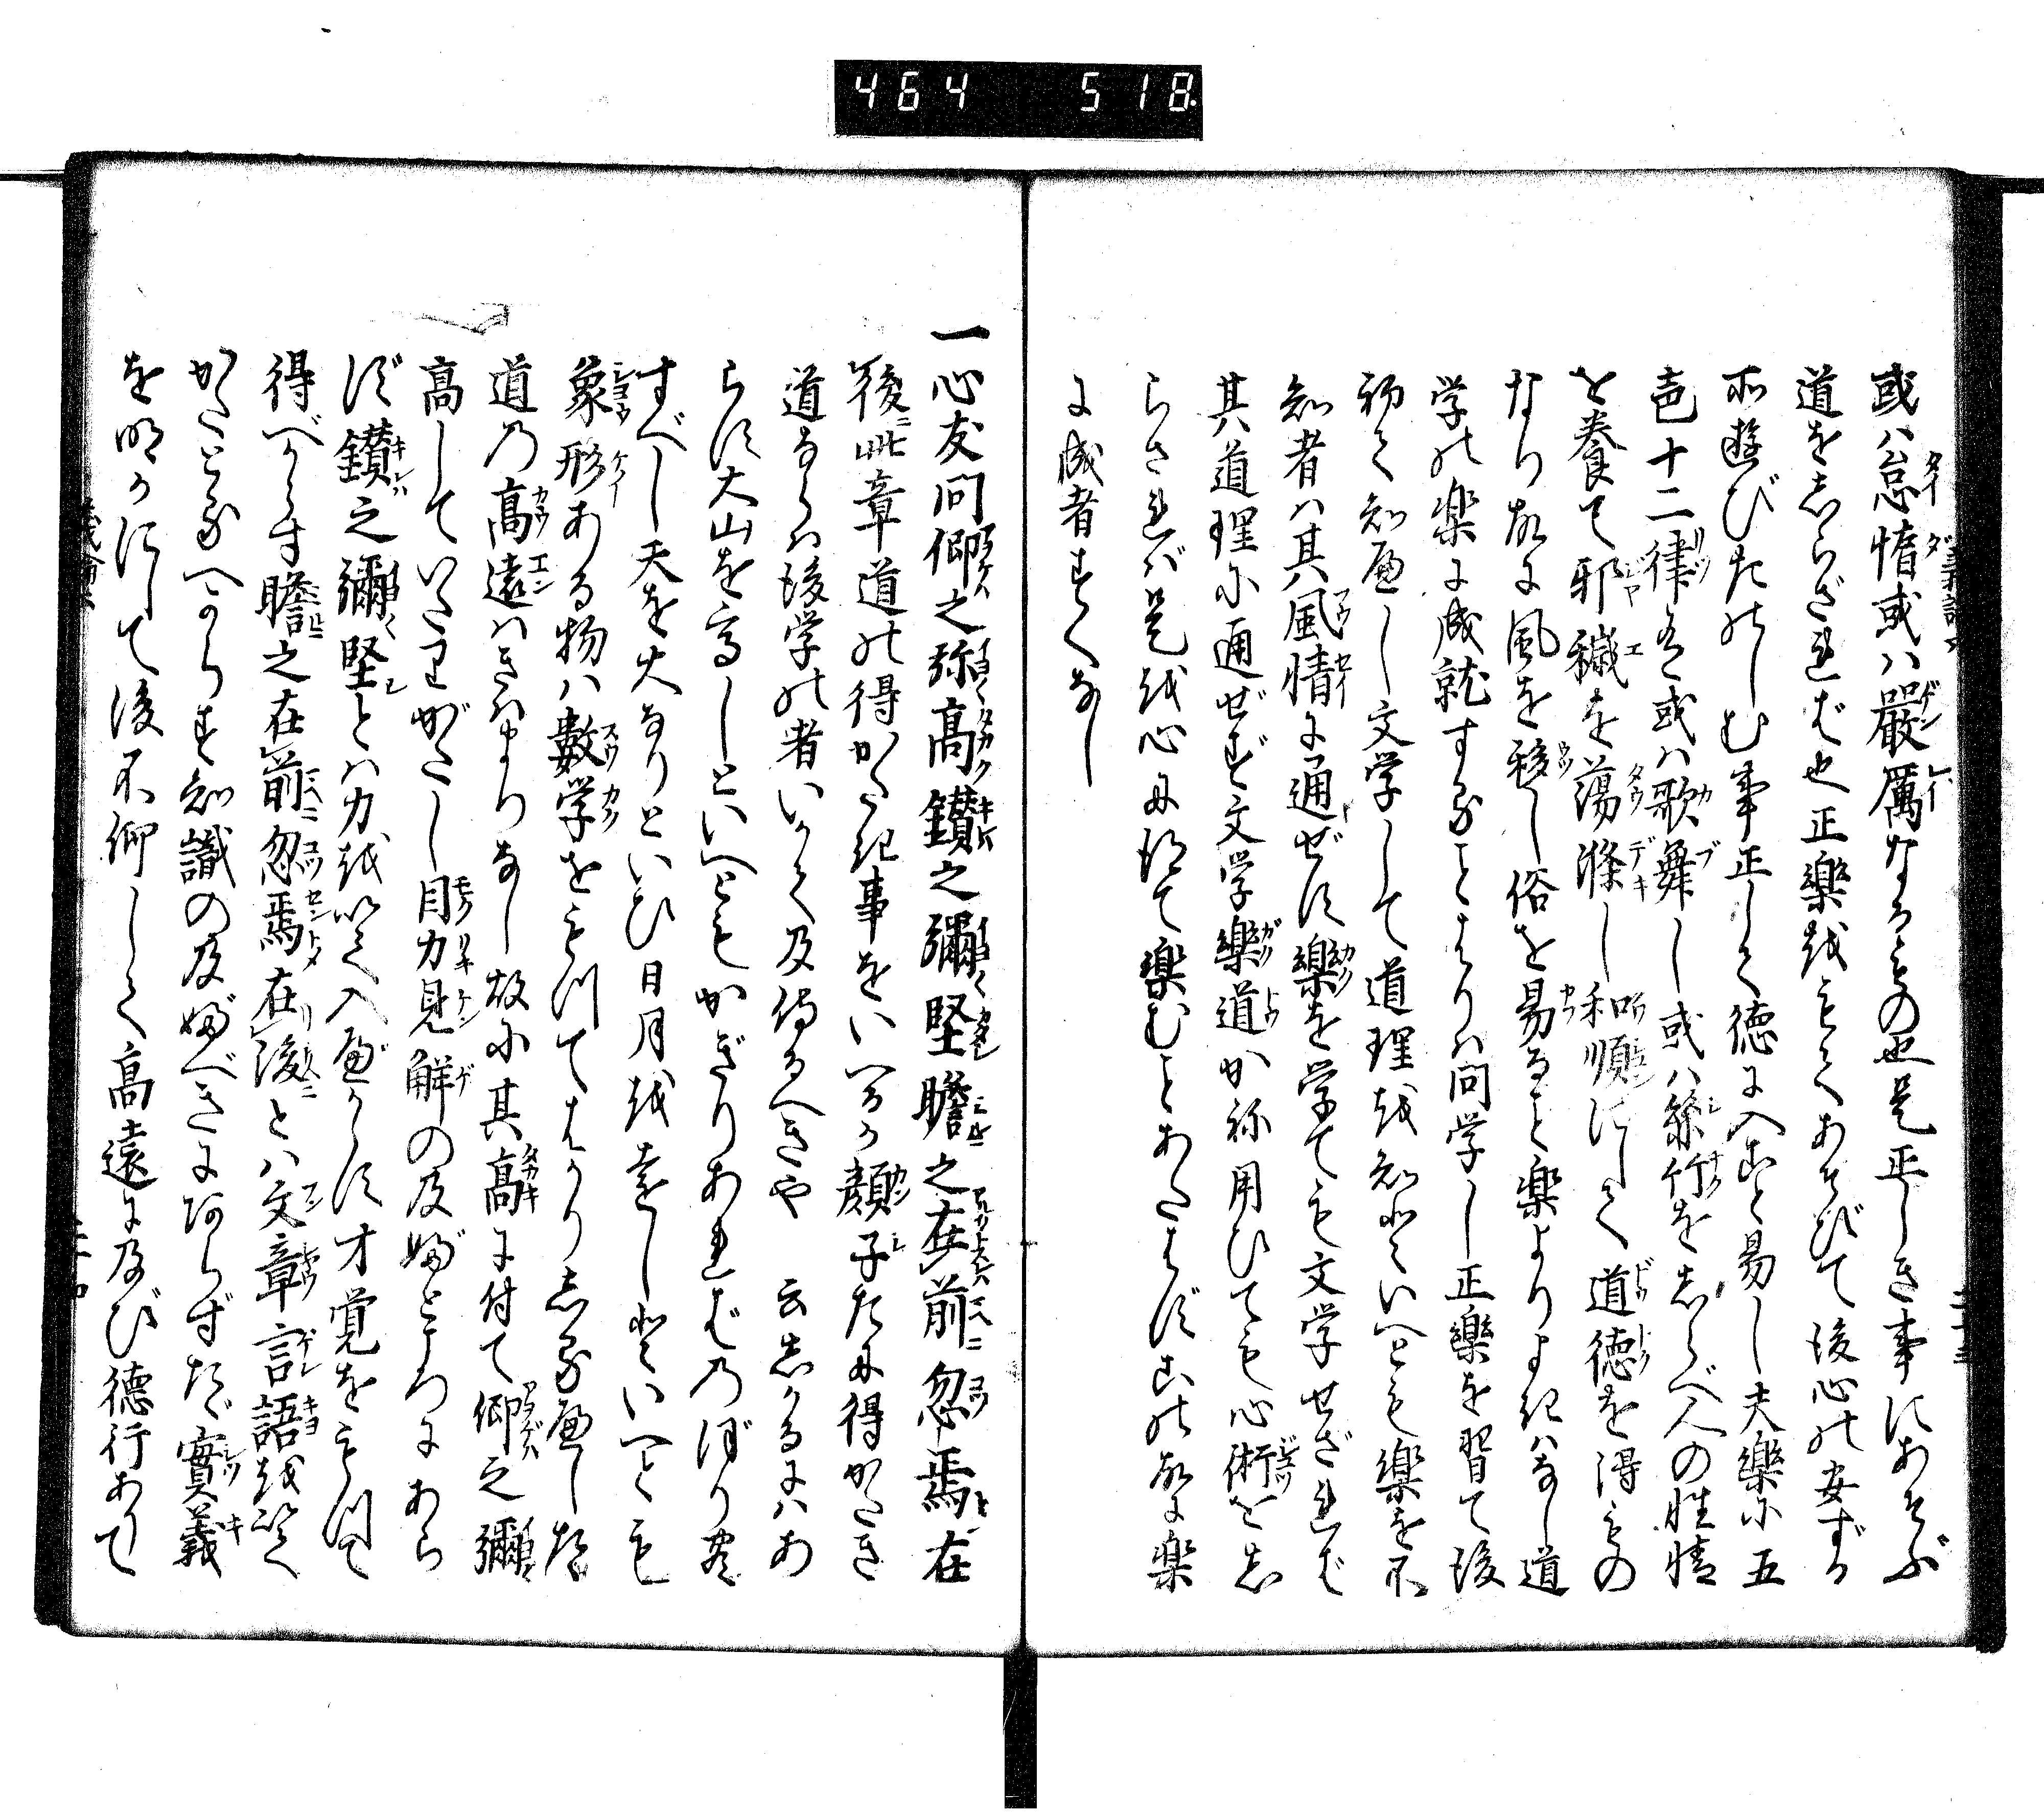 464 518
或ハ怠惰或ハ嚴厲なるもの也是正しき事にあそぶ
道を志らざれば也正樂越もてあそびて後心の安ずる
所遊びたのしむ事正して徳に入こと易し夫樂に五
声十二律有或ハ歌舞し或ハ絲竹を志らべ人の性情
を養て邪穢を蕩滌し和順にして道徳を得もの
なり故に風を移し俗を易ること樂よりよきハなし道
学の楽に成就することはりハ問学し正樂を習て後
初て知べし文学して道理を知といへども樂を不
知者ハ其風情に通ぜず樂を学ても文学せざれば
其道理に通ぜず文学樂道かね用ひても心術を志
らされバ是を心に得て楽むことあたはず此故に楽
に成者すくなし
一心友問仰之弥高鑚之彌堅瞻之在前忽焉在
後此章道の得がたき事をいへるか顔子だに得がたき
道ならハ後学の者いかで及侍るべきや 云志かるにハあ
らず大山を高しといへどもかぎりあれば乃ぼり尽
すべし天を大なりといひ日月を遠しといへども
象形ある物ハ数学をもつてはかり志るべしただ
道乃高遠ハきはまりなし故に其高に付て仰之彌
高していたりがたし目力見解の及ぶところにあら
ず鑚之彌堅とハ力を以て入べからず才覚をもつて
得べからず瞻之在前忽焉在後とハ文章言語を以て
かたどるへからず知識の及ぶべきにあらずただ實義
を明かにして後不仰して高遠に及び徳行ありて